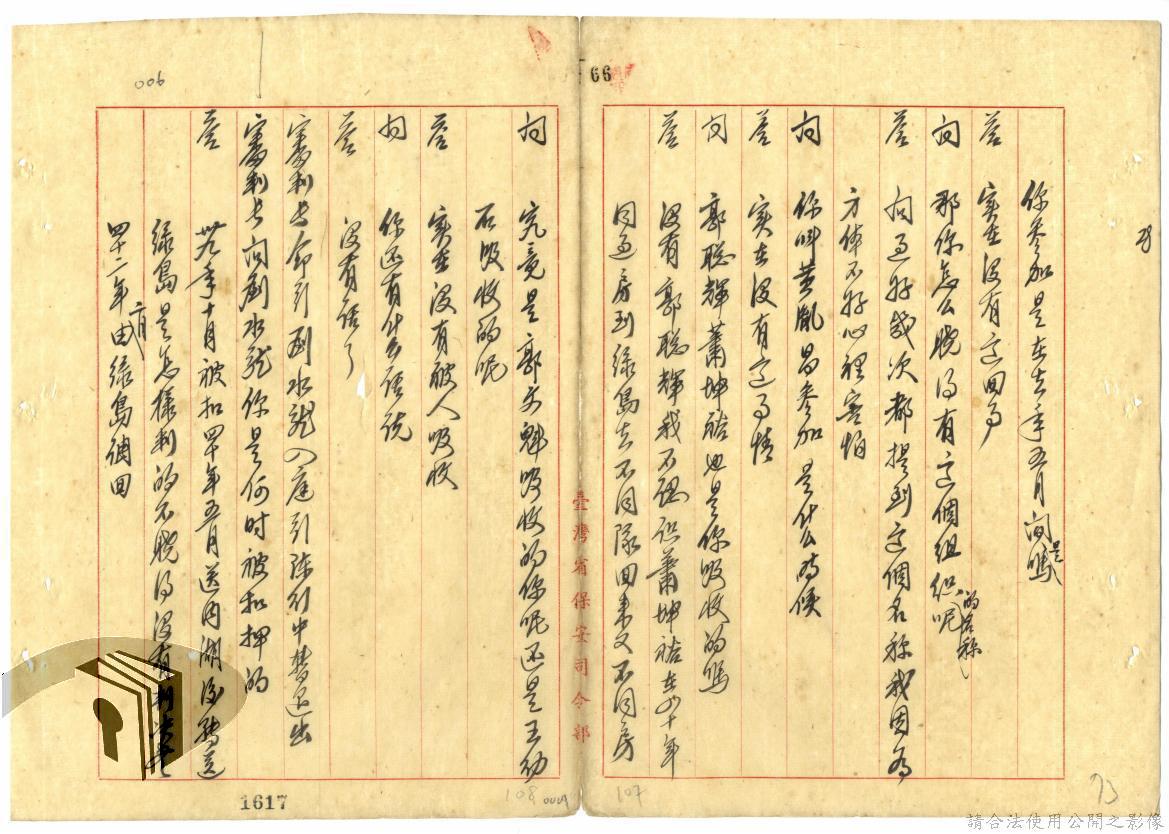 你參加是在去年五月間是嗎
答 實在沒有這回事
問 那你怎么曉得有這個組織的名称呢
答 問過好幾次都提到這個名称我因為
方体不好心裡害怕
問 你叫黃胤昌參加是什么時候
答 實在沒有這事情
問 郭聰輝蕭坤裕也是你吸收的嗎
答 沒有郭聰輝我不認识蕭坤裕在四十年
同過房到綠島去不同隊回來又不同房
臺灣省保安司令部
問 究竟是郭文魁吸收的你呢还是王幼
石吸收的呢
答 實在沒有被人吸收
問 你还有什么話説
答 沒有話了
審判長命引劉水龍入庭引陳列中替退出
審判長問劉水龍你是何时被扣押的
答 卅九年十月被扣四十年五月送內湖後轉送
綠島是怎樣判的不曉得沒有判決書
四十二年二月由綠島調回
66
006
1617
108
107
73
請合法使用公開之影像